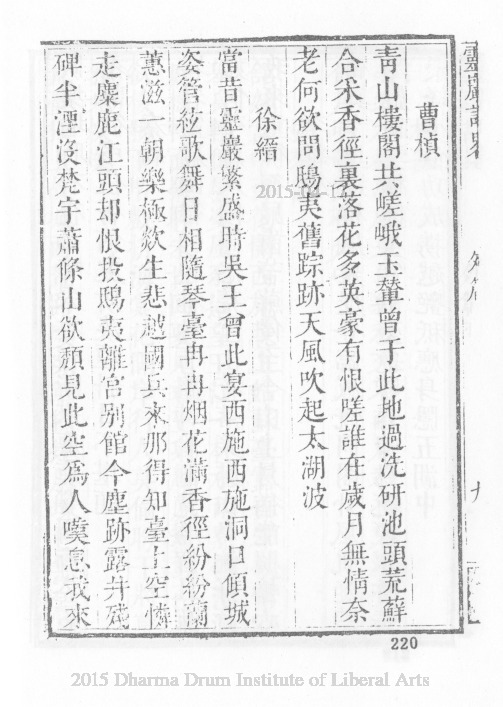 靈巖記畧
九
曹楨
靑山樓閣共嵯峨玉輦曾于此地過洗研池頭荒蘚
合采香徑裏落花多英豪有恨嗟誰在歲月無情奈
老何欲問鴟夷舊踪跡天風吹起太湖波
徐縉
當昔靈巖繁盛時吳王曾此宴西施西施洞口傾城
姿管絃歌舞日相隨琴臺冉冉烟花滿香徑紛紛蘭
蕙滋一朝樂極欻生悲越國兵來那得知臺上空憐
走麋鹿江頭却恨投鴟夷離宮别館今塵跡露井殘
碑半湮沒梵宇蕭條山欲頹見此空爲人嘆息我來
220
2015 Dharma Drum Institute of Liberal Arts